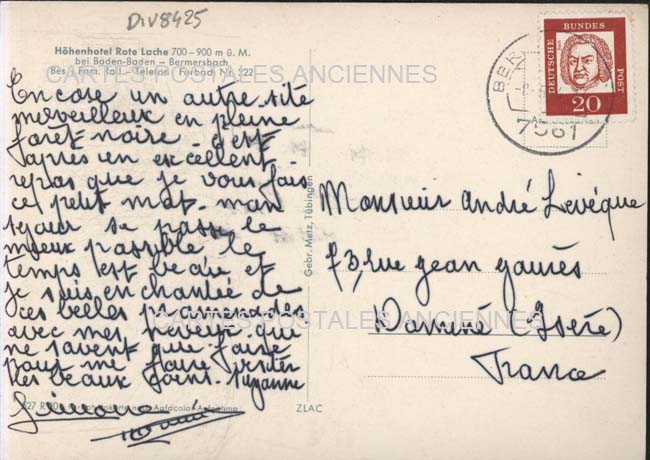 DIV8425
Höhenhotel Rote Lache 700–900 m ü. M.
bei Baden-Baden – Bermersbach
Bes.: Fam. Telefon: Forbach Nr. 222
CARTES POSTALES ANCIENNES
Encore un autre site
merveilleux en pleine
forêt noire. c'est
après un excellent
repas que je vous fais
ce petit mot. mon
séjour se passe le
mieux possible le
temps est beau et
je suis enchantée de
ces belles promenades
avec mes neveux qui
ne savent que faire
pour me faire visiter
les beaux coins. Suzanne
Gebr. Metz, Tübingen
DEUTSCHE BUNDES POST
20
BER
7561
Monsieur André Levêque
73, rue Jean Jaurès
Domène (Isère)
France
CARTES POSTALES ANCIENNES
ZLAC